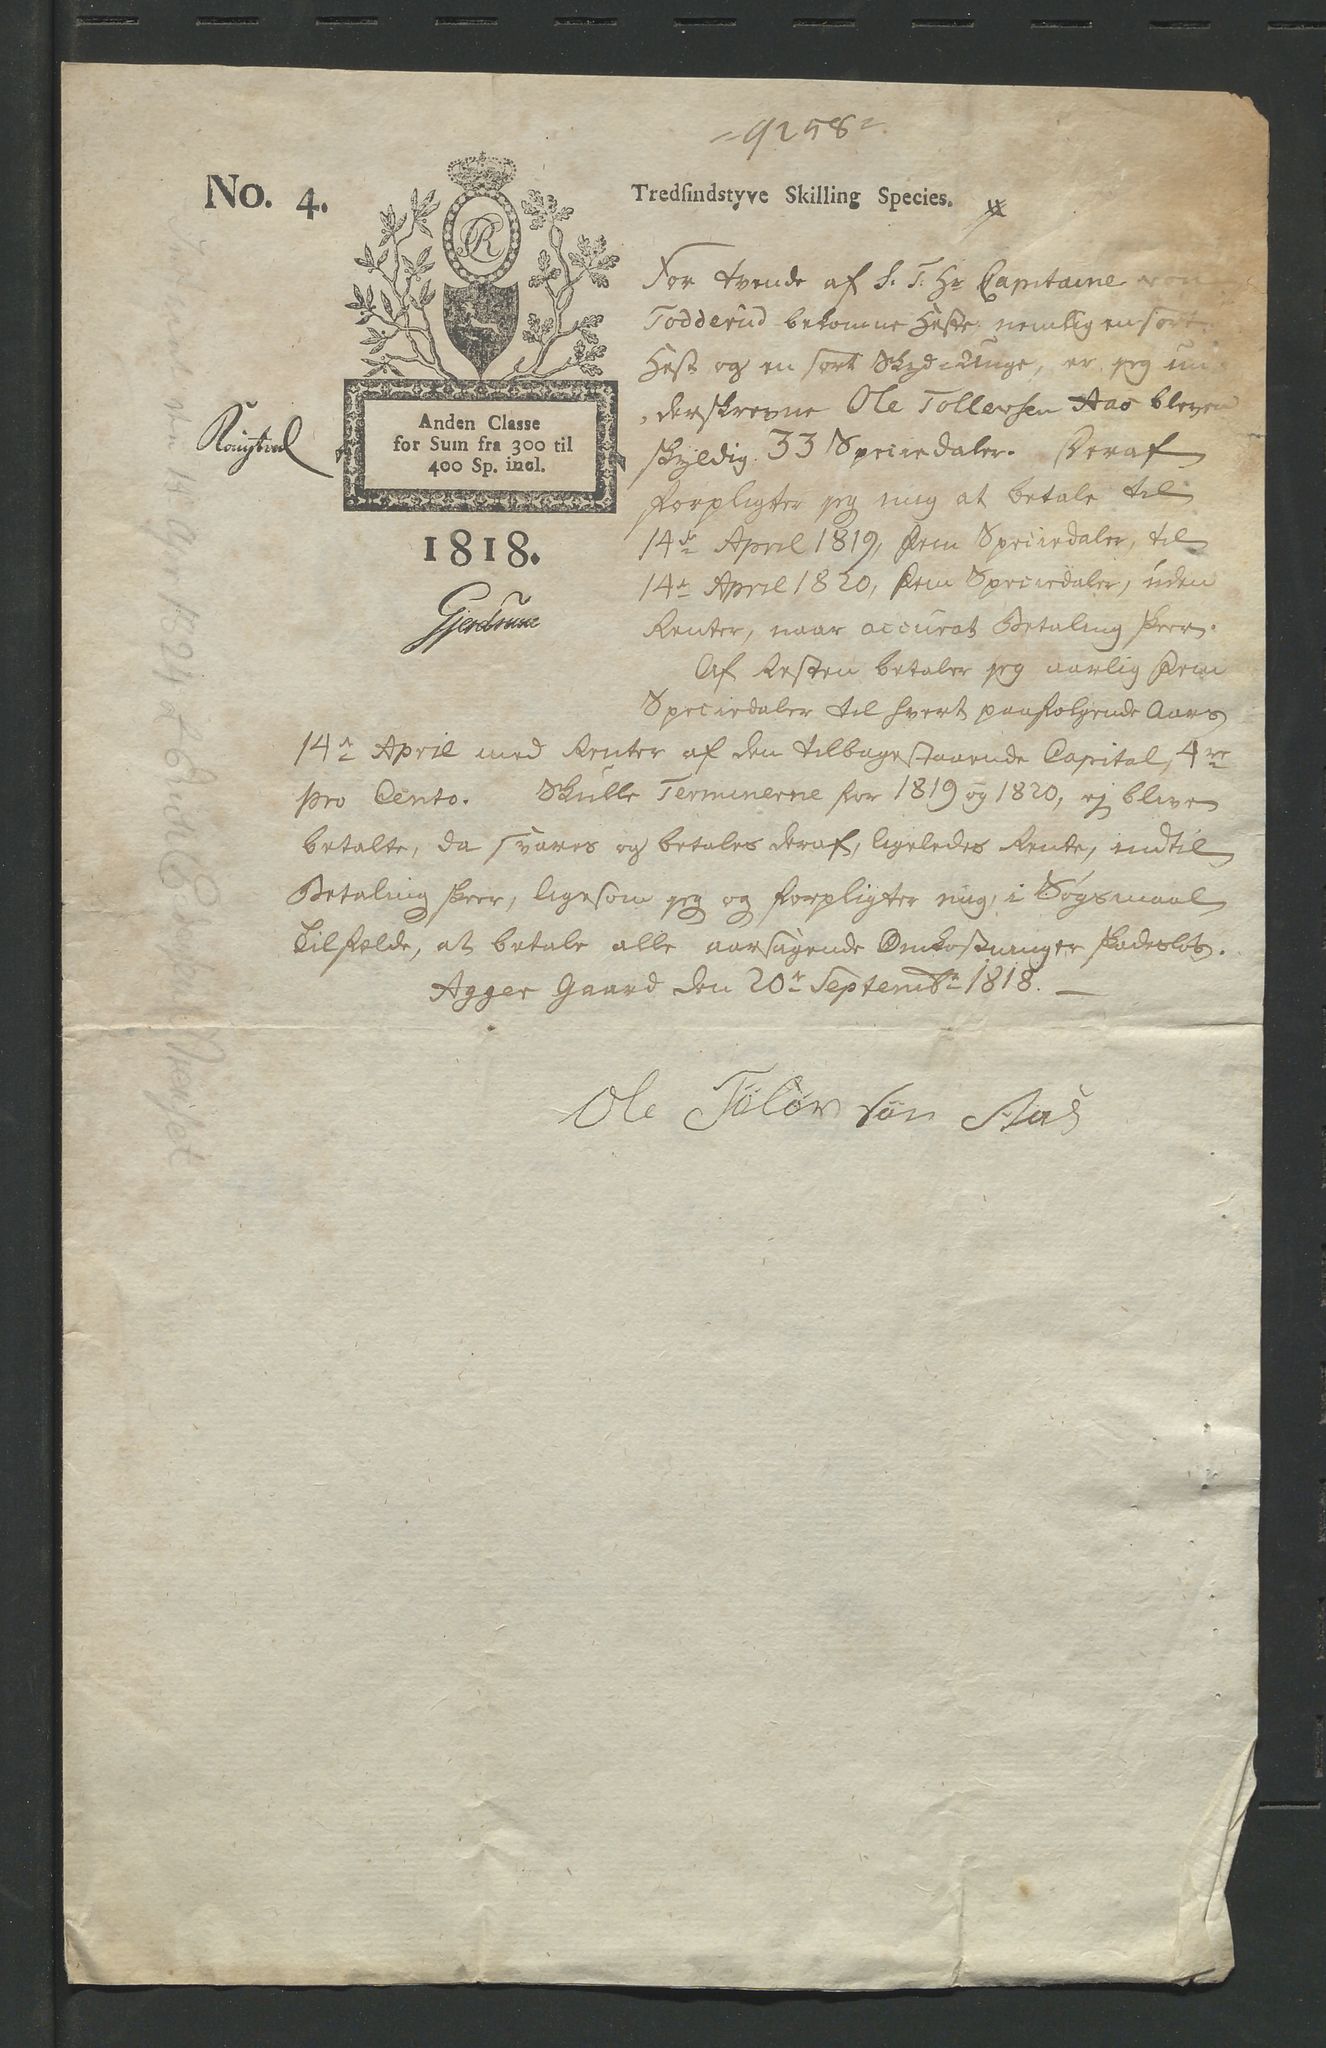 9258
No. 4.
Tredsindstyve Skilling Species.
Anden Classe
for Sum fra 300 til
400 Sp. incl.
1818.
Gjerdrum
For tvende af S. T. Hr Capitaine von
Todderud bekomne Heste, nemlig en sort
Hest og en sort Unge, er jeg un-
derskrevne Ole Tollevsen Aas bleven
skyldig 33 Speciedaler. Deraf
forpligter jeg mig at betale til
14de April 1819, fem Speciedaler, til
14de April 1820, fem Speciedaler, uden
Renter, naar accurat Betaling skeer.
Af Resten betaler jeg aarlig fem
Speciedaler til hvert paafølgende Aars
14de April med Renter af den tilbagestaaende Capital, 4re
pro Cento. Skulle Terminerne for 1819 og 1820, ej blive
betalte, da svares og betales deraf, ligeledes Rente, indtil
Betaling skeer, ligesom jeg og forpligter mig, i Søgsmaals
Tilfælde, at betale alle aarsagende Omkostninger skadesløs.
Agger Gaard den 20de Septembr 1818.
Ole Tölöv sön Aas